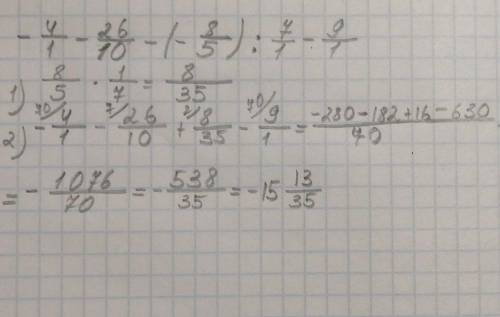 - 4/1 - 26/10 - (- 8/5) : 7/1 - 9/1
1) 8/5 · 1/7 = 8/35
2) - 70/ 4/1 - 7/ 26/10 + 2/ 8/35 - 70/ 9/1 = -280-182+16-630/70
= - 1076/70 = - 538/35 = -15 13/35